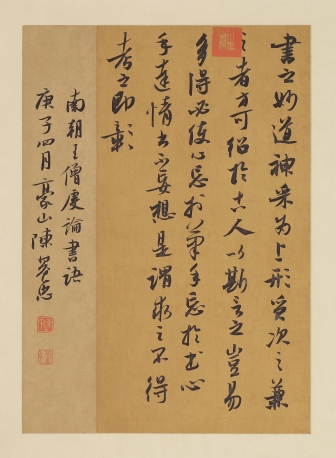 書之妙道神采為上形質次之兼
之者方可紹於古人以斯言之豈易
多得必使心忘於筆手忘於書心
手達情書不妄想是謂求之不得
考之即彰
南朝王僧虔論書語
庚子四月豪山陳